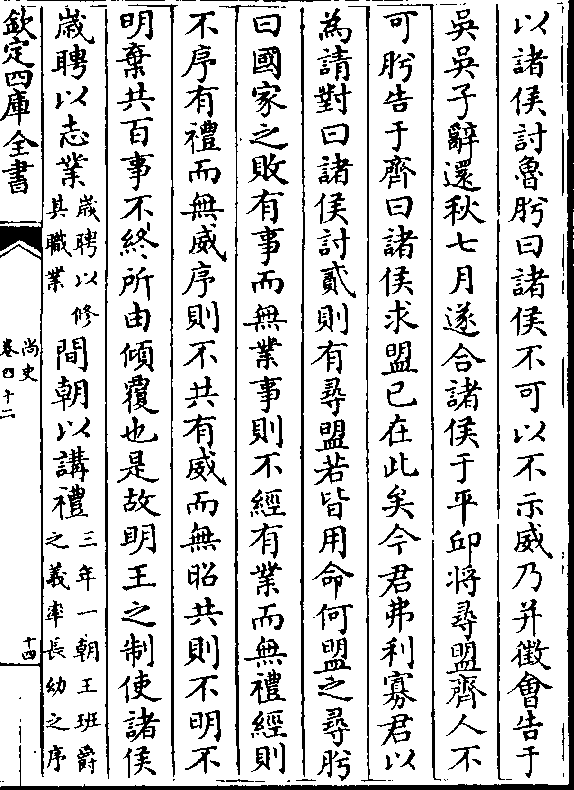 以諸侯討魯肸曰諸侯不可以不示威乃并徵會告于
吳吳子辭還秋七月遂合諸侯于平邱將尋盟齊人不
可肸告于齊曰諸侯求盟已在此矣今君弗利寡君以
為請對曰諸侯討貳則有尋盟若皆用命何盟之尋肸
曰國家之敗有事而無業事則不經有業而無禮經則
不序有禮而無威序則不共有威而無昭共則不明不
明棄共百事不終所由傾覆也是故明王之制使諸侯
歲聘以志業歲聘以修其職業間朝以講禮三年一朝王班爵之義率長幼之序
欽定四庫全書
尚史
卷四十二
十四